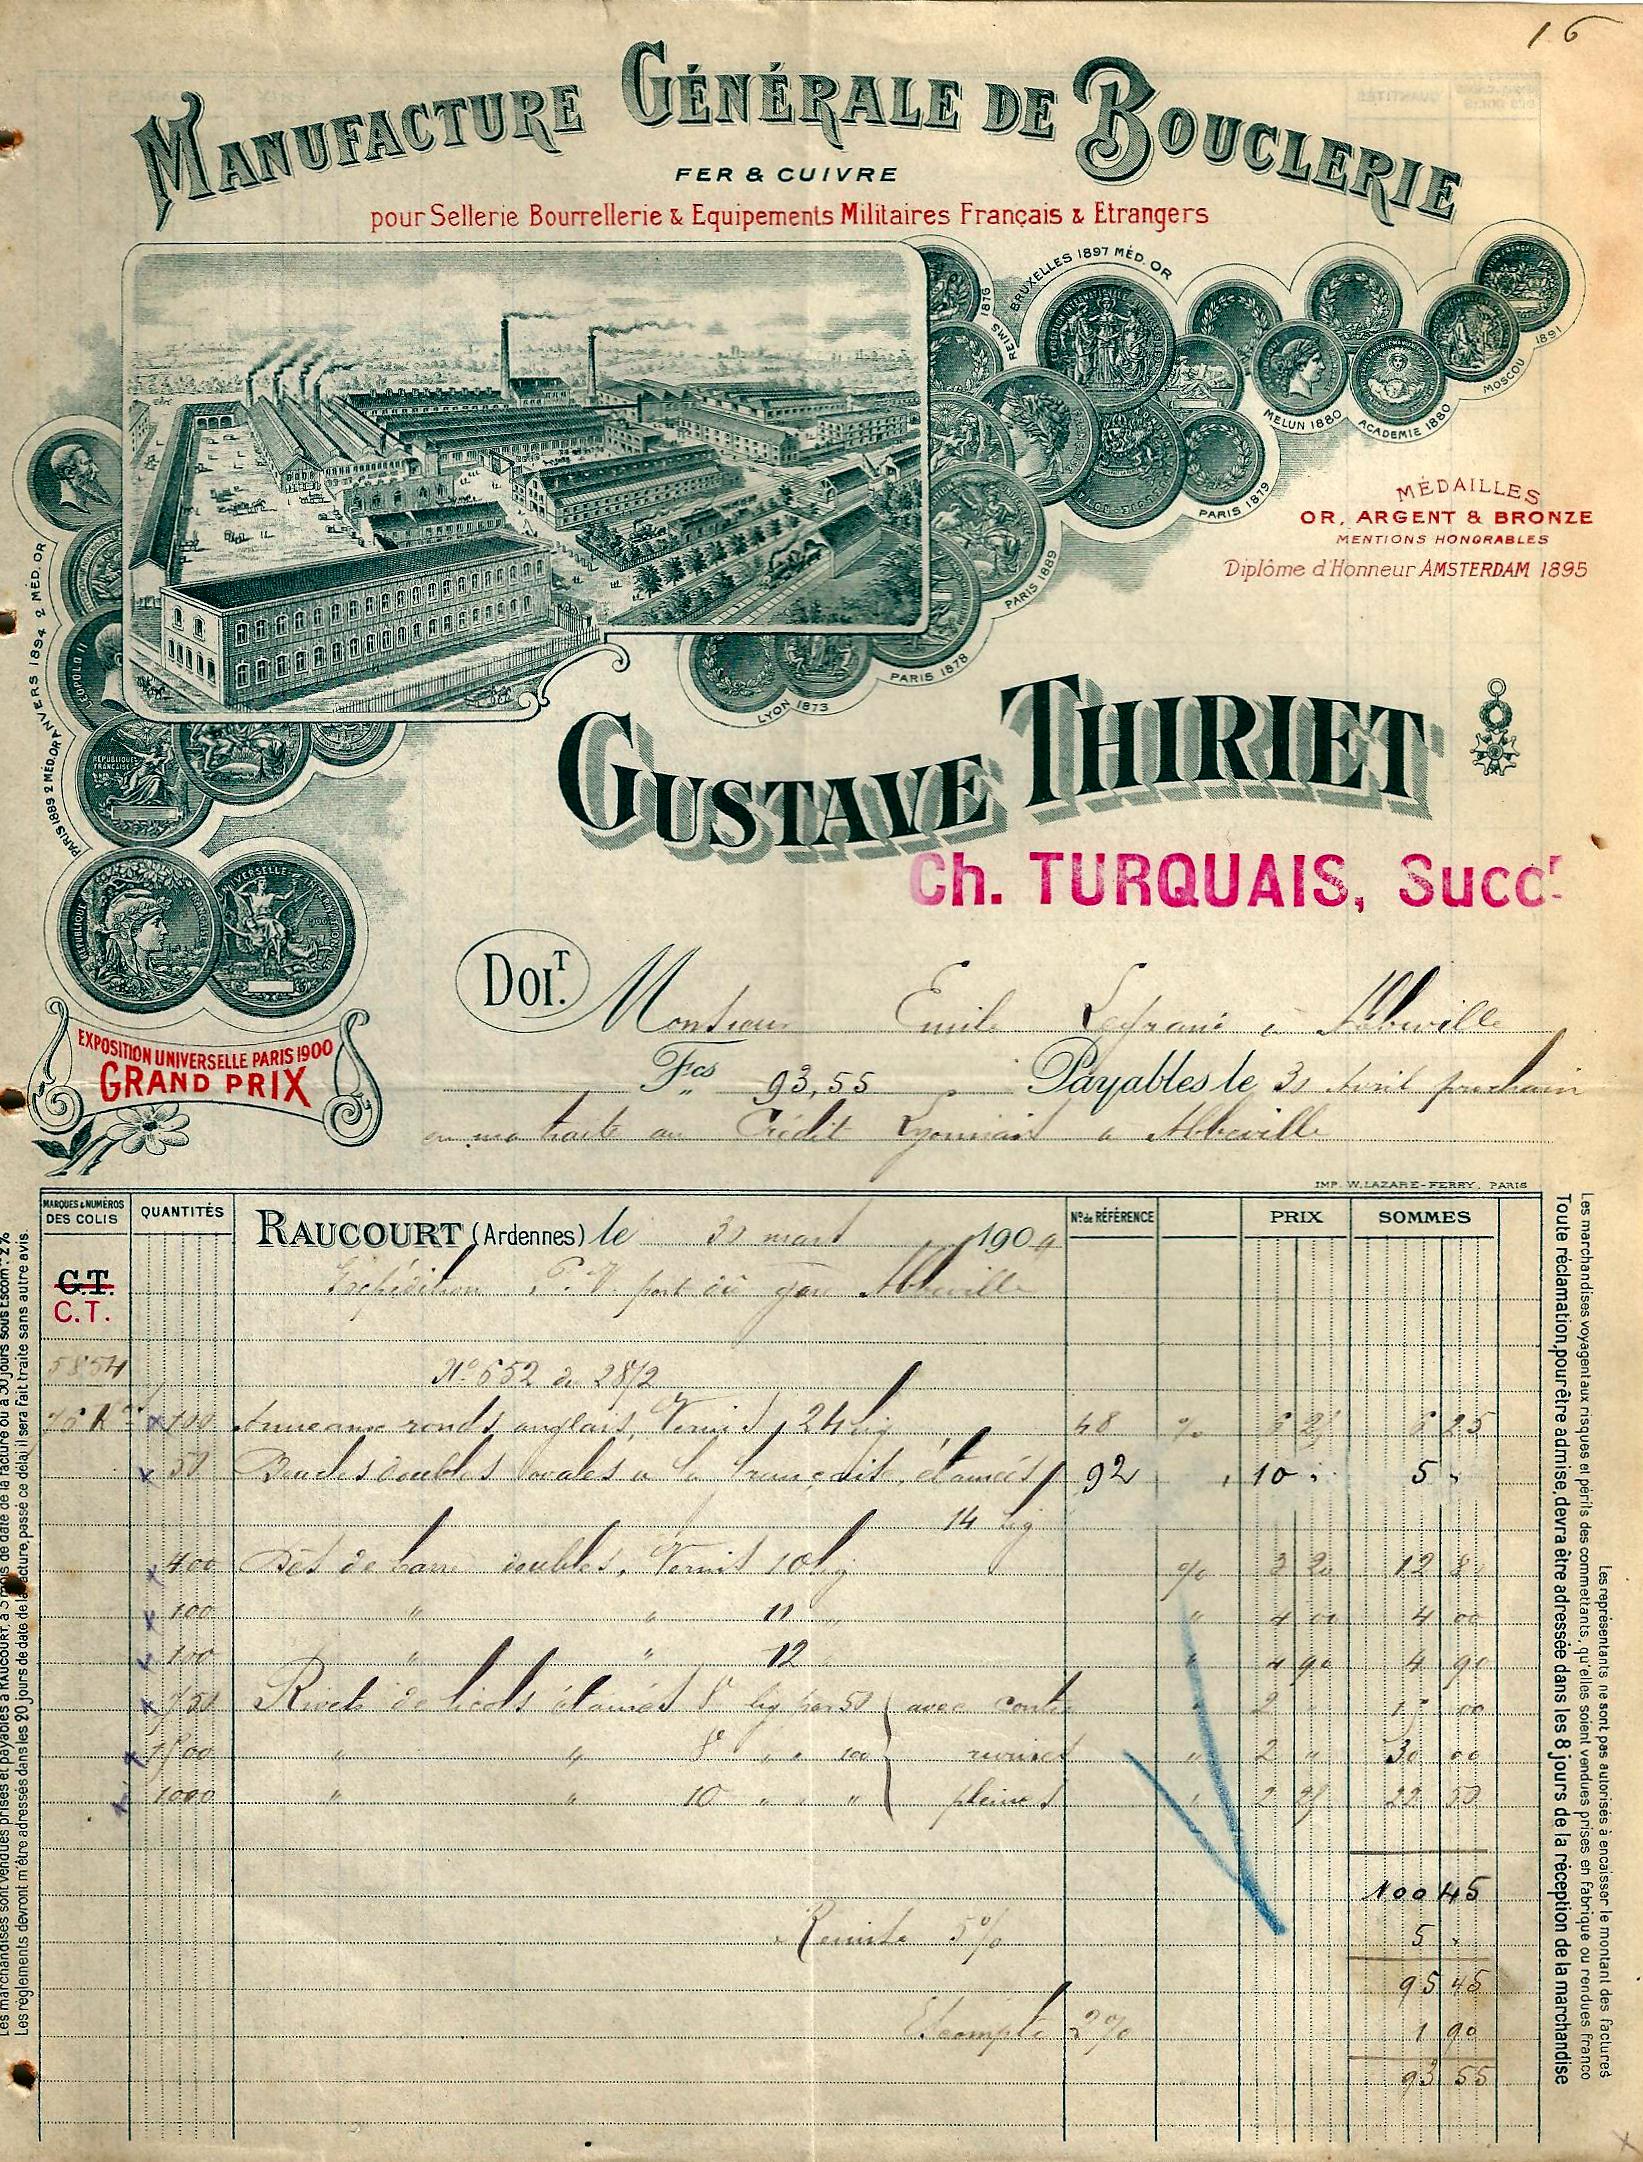 16
MANUFACTURE GÉNÉRALE DE BOUCLERIE
FER & CUIVRE
pour Sellerie Bourrellerie & Equipements Militaires Français & Etrangers
REIMS 1876
BRUXELLES 1897 MÉD. OR
MELUN 1880
ACADEMIE 1880
MOSCOU 1891
PARIS 1879
PARIS 1889
PARIS 1878
LYON 1873
MÉDAILLES
OR, ARGENT & BRONZE
MENTIONS HONORABLES
Diplôme d'Honneur AMSTERDAM 1895
LEOPOLD II
PARIS 1889 2 MÉD. OR ANVERS 1894 2 MÉD. OR
REPUBLIQUE FRANÇAISE
GUSTAVE THIRIET
Ch. TURQUAIS, Succr
EXPOSITION UNIVERSELLE PARIS 1900
GRAND PRIX
DOIT. Monsieur Emile à Abbeville
Fcs 93,55 Payables le 31 Avril prochain
en ma traite au Crédit Lyonnais à Abbeville
IMP. W. LAZARE-FERRY, PARIS
MARQUES & NUMÉROS DES COLIS QUANTITÉS RAUCOURT (Ardennes) le 30 mars 1909 Nos de RÉFÉRENCE PRIX SOMMES
G.T.
C.T.
Expédition P. V. port dû gare Abbeville
5854
No 652 du 28/2
76 K 100 Anneaux ronds anglais, Vernis, 24 lig 48 % 6 25 6 25
50 Boucles doubles ovales à la française, étamées 92 " 10 " 5 "
14 lig
400 Dés de barre doubles, Vernis 10 lig % 3 20 12 80
100 " " 11 " " 4 00 4 00
100 " " 12 " " 4 90 4 90
750 Rivets de licols étamés 8 lig par 50 avec contre " 2 " 15 00
1500 " " 8 " " 100 rivures " 2 " 30 00
1000 " " 10 " " " pleines " 2 25 22 50
100 45
Remise 5% 5 "
95 45
Escompte 2% 1 90
93 55
Les marchandises sont vendues prises et payables à RAUCOURT, à 3 mois de date de la facture ou à 30 jours sous Escom. 2%
Les règlements devront m'être adressés dans les 20 jours de date de la facture, passé ce délai il sera fait traite sans autre avis.
Toute réclamation, pour être admise, devra être adressée dans les 8 jours de la réception de la marchandise
Les marchandises voyagent aux risques et périls des commettants, qu'elles soient vendues prises en fabrique ou rendues franco
Les représentants ne sont pas autorisés à encaisser le montant des factures